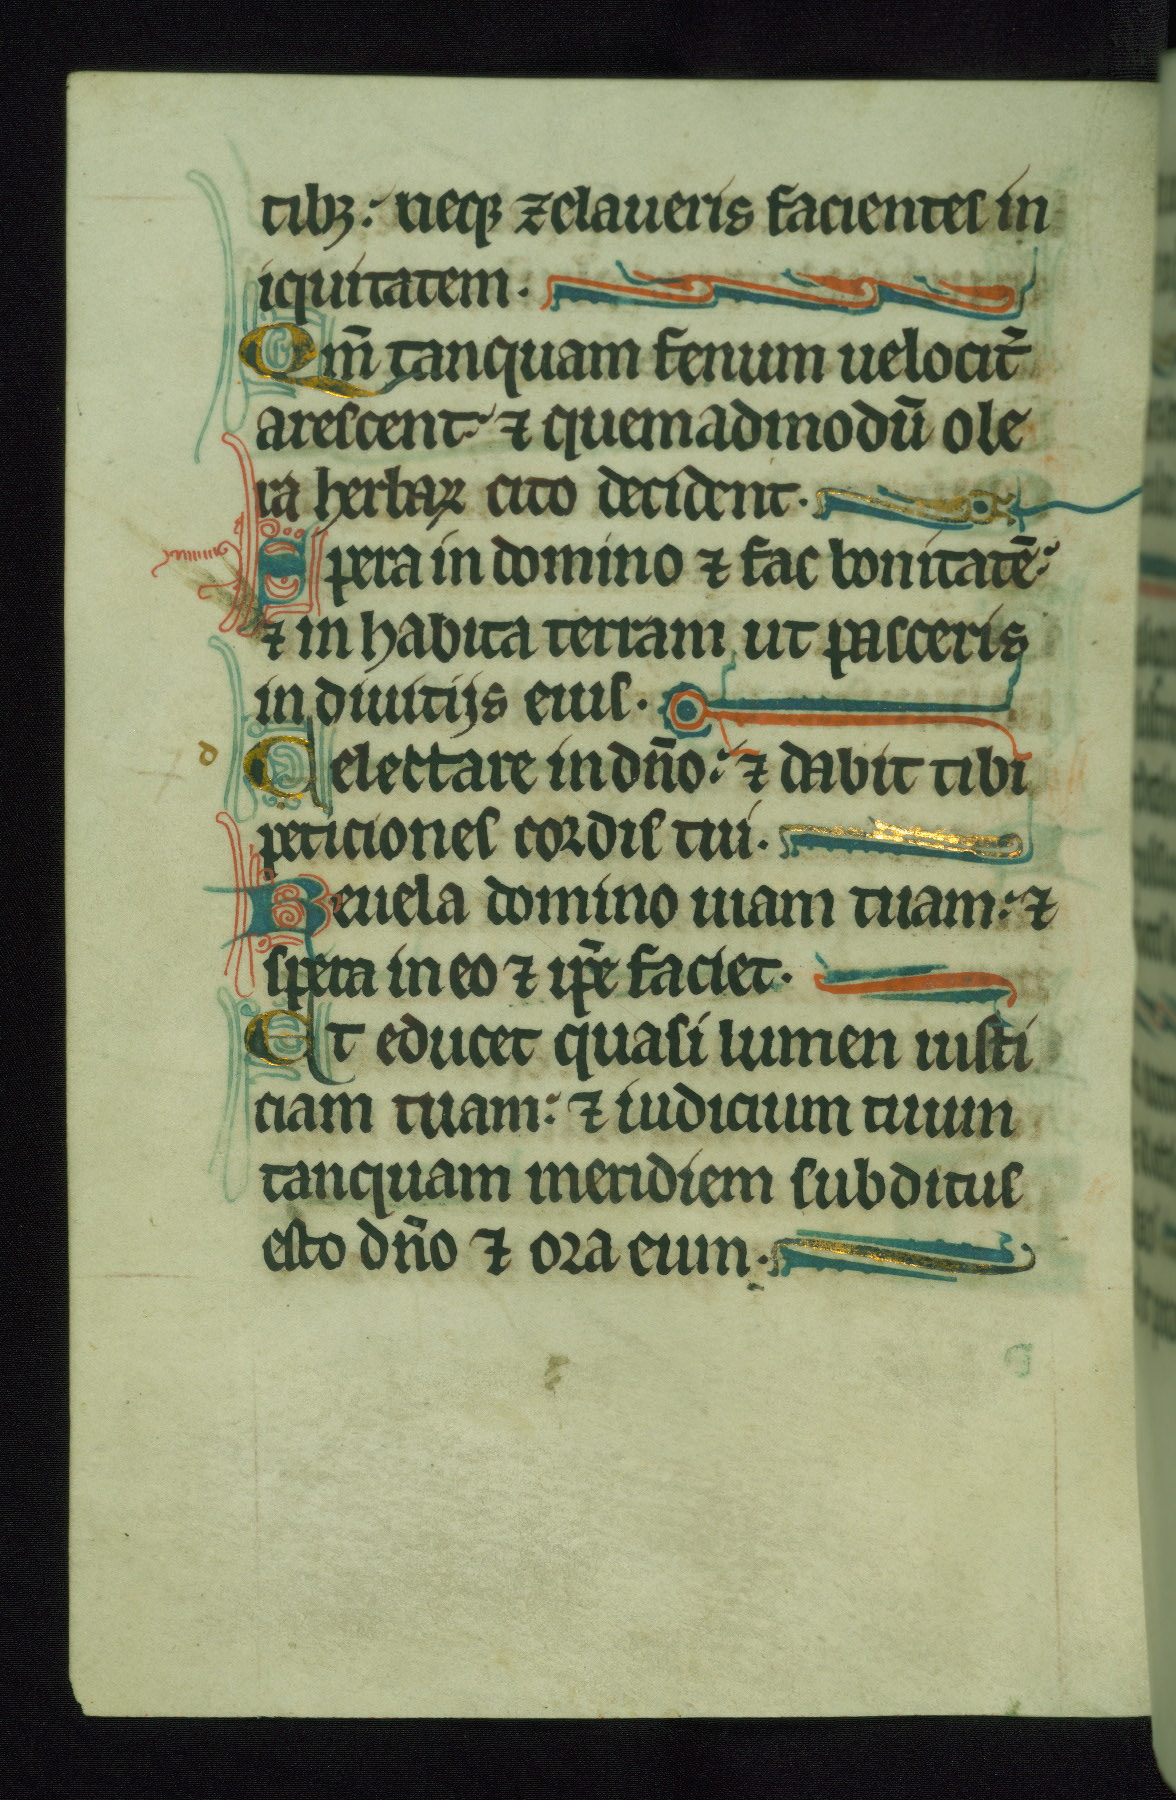 tibꝫ: neqꝫ zelaueris facientes in
iquitatem.
Qm̄ tanquam fenum uelocit͛
arescent: ⁊ quemadmodū ole
ra herbaꝝ cito decident.
Spera in domino ⁊ fac bonitatē:
⁊ in habita terram ut pasceris
in diuitijs eius.
d
Delectare in dño: ⁊ dabit tibi
peticiones cordis tui.
Reuela domino uiam tuam: ⁊
spera in eo ⁊ ip̄e faciet.
Et educet quasi lumen iusti
ciam tuam: ⁊ iudicium tuum
tanquam meridiem subditus
esto dño ⁊ ora eum.